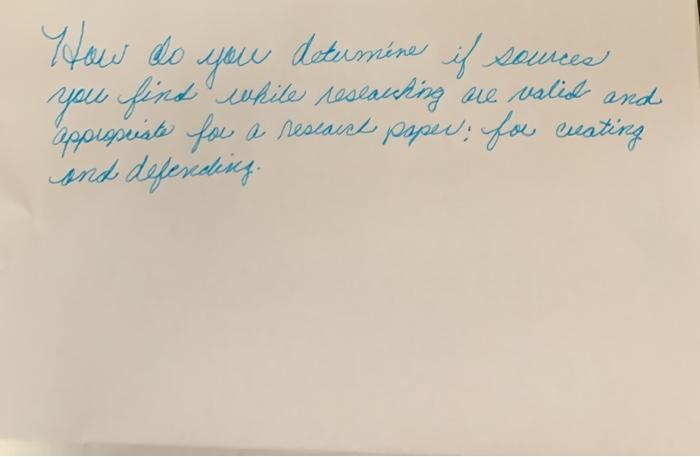 How do you determine if sources
you find while researching are valid and
appropriate for a research paper: for creating
and defending.